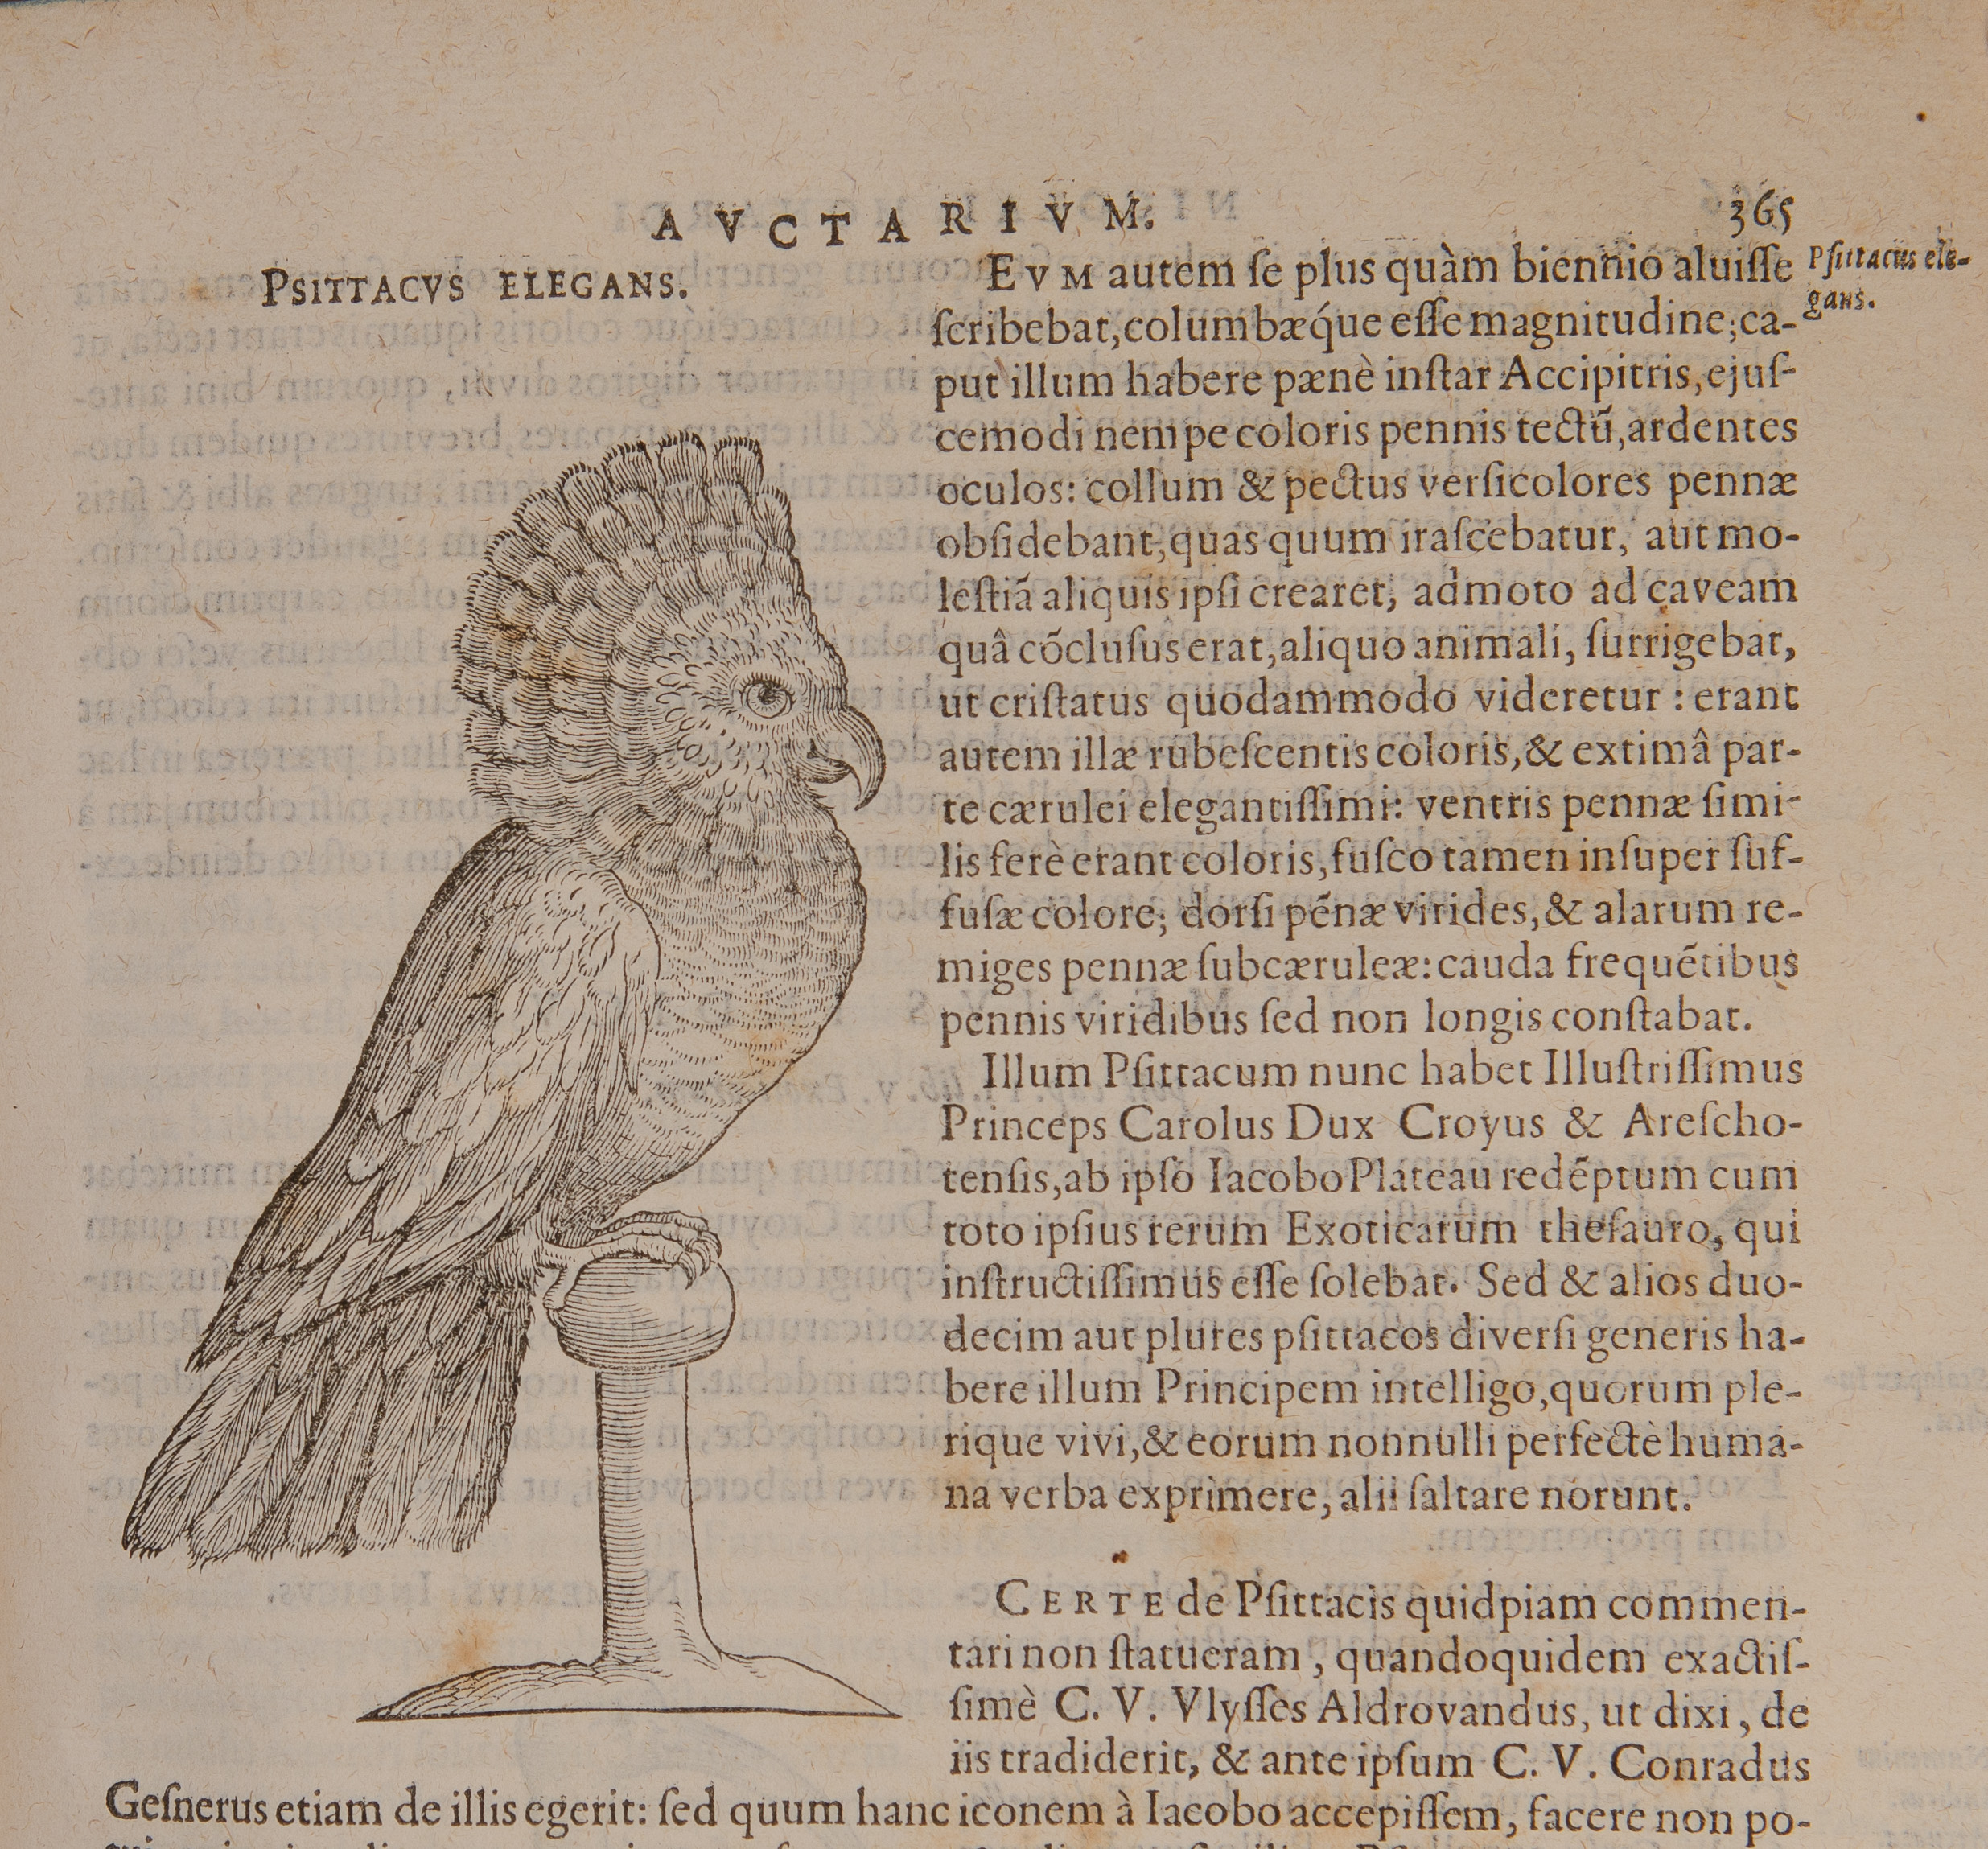 AVCTARIVM. 365
PSITTACVS ELEGANS.
EVM autem ſe plus quàm biennio aluiſſe
Pſittacus ele-
gans.
ſcribebat, columbæq́ue eſſe magnitudine; ca-
put illum habere pænè inſtar Accipitris, ejuſ-
cemodi nempe coloris pennis tectũ, ardentes
oculos: collum & pectus verſicolores pennæ
obſidebant, quas quum iraſcebatur, aut mo-
leſtiã aliquis ipſi crearet, admoto ad caveam
quâ cõcluſus erat, aliquo animali, ſurrigebat,
ut criſtatus quodammodo videretur: erant
autem illæ rubeſcentis coloris, & extimâ par-
te cærulei elegantiſſimi: ventris pennæ ſimi-
lis ferè erant coloris, fuſco tamen inſuper ſuf-
fuſæ colore; dorſi pẽnæ virides, & alarum re-
miges pennæ ſubcæruleæ: cauda frequẽtibus
pennis viridibus ſed non longis conſtabat.
Illum Pſittacum nunc habet Illuſtriſſimus
Princeps Carolus Dux Croyus & Areſcho-
tenſis, ab ipſo Iacobo Plateau redẽptum cum
toto ipſius rerum Exoticarum theſauro, qui
inſtructiſſimus eſſe ſolebat. Sed & alios duo-
decim aut plures pſittacos diverſi generis ha-
bere illum Principem intelligo, quorum ple-
rique vivi, & eorum nonnulli perfectè huma-
na verba exprimere, alii ſaltare norunt.
CERTE de Pſittacis quidpiam commen-
tari non ſtatueram, quandoquidem exactiſ-
ſimè C. V. Vlyſſes Aldrovandus, ut dixi, de
iis tradiderit, & ante ipſum C. V. Conradus
Geſnerus etiam de illis egerit: ſed quum hanc iconem à Iacobo accepiſſem, facere non po-